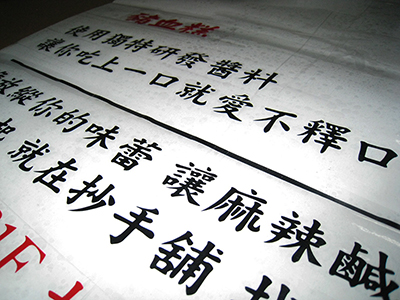 豬血糕
使用獨特研發醬料
讓你吃上一口就愛不釋口
放縱你的味蕾 讓麻辣鹹
就在抄手舖
1F